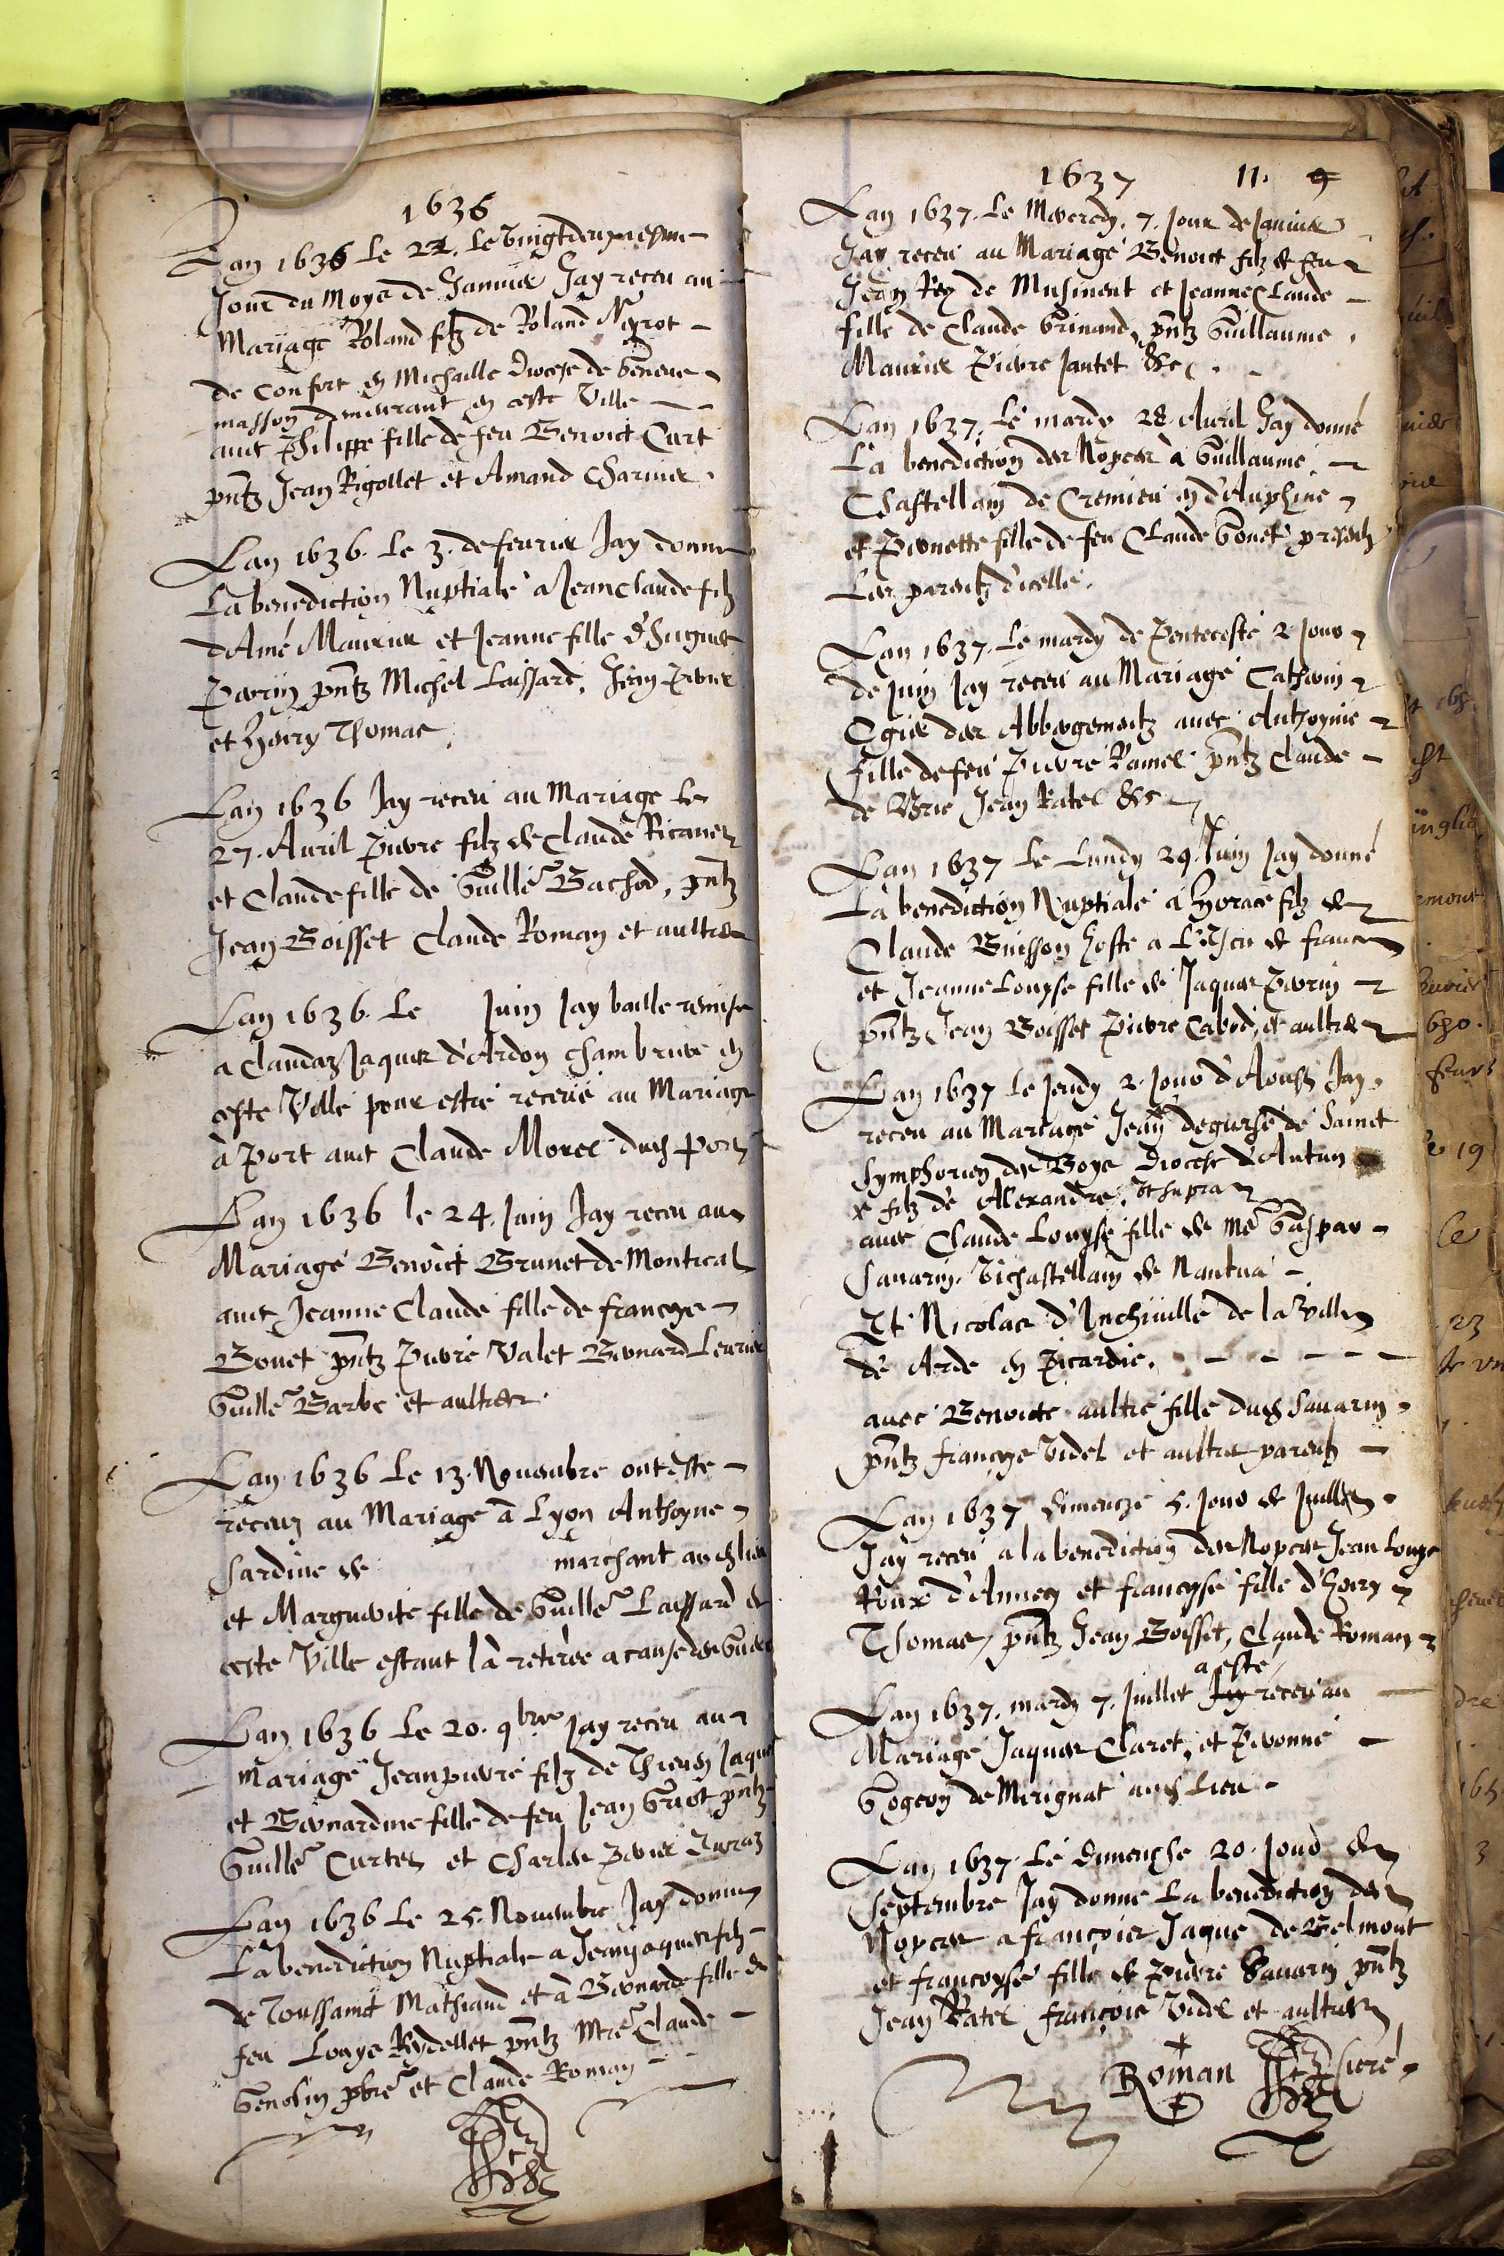 1636
Lan 1636 Le 22. Le vingtdeuxiesme
Jour du Moys de Januier Jay receu au
Mariage Roland filz de Roland Neyrot
de Confort en Michaille Diocese de Geneue
masson demeurant en ceste Ville
auec Philippe fille de feu Benoict Curt
pntz Jean Rigollet et Amand Charuier.
Lan 1636. Le 3. de feurier Jay donne
La benediction Nuptiale a Jean Claude filz
d'Amé Maurier et Jeanne fille d'Hugues
Perrin pntz Michel Laissard, Jean
et Henry Thomas.
Lan 1636 Jay receu au Mariage Le
27. Auril Pierre filz de Claude Ricanet
et Claude fille de Guille Bachod, pntz
Jean Boisset Claude Roman et aultres
Lan 1636. Le Juin Jay baille remise
a Claudaz Jaques d'Ardon chambriere en
ceste Ville pour estre receue au Mariage
à Port auec Claude Morel dud Port
Lan 1636 le 24. Juin Jay receu au
Mariage Benoict Brunet de Montreal
auec Jeanne Claude fille de francoys
Bouet pntz Pierre Valet Bernard Leurier
Guille Barbe et aultres.
Lan 1636 Le 13. Nouembre ont este
receuz au Mariage à Lyon Anthoyne
Sardine de marchant aud lieu
et Marguerite fille de Guille Laissard de
ceste Ville estant là retirée a cause des Guerres
Lan 1636 Le 20. 9bre Jay receu au
Mariage Jean pierre filz de Jaques
et Bernardine fille de feu Jean Griot pntz
Guille Curtet et Charles
Lan 1636 Le 25. Nouembre Jay donne
La benediction Nuptiale a Jean Jaques filz
de Toussainct Mathiaud et à Bernarde fille de
feu Louys Reydellet pntz Mre Claude
Genolin pbre et Claude Roman
1637 11. 9
Lan 1637. Le Mercredy. 7. Jour de Januier
Jay receu au Mariage Benoict filz de feu
Jean Rey de Musinent et Jeanne Claude
fille de Claude Grinand, pntz Guillaume
Maurier Pierre Jantet &c.
Lan 1637. Le mardy 28. Auril Jay donné
La benediction des Nopces à Guillaume
Chastellain de Cremieu en d'Auphine
et Pernette fille de feu Claude Gonet presentz
Les parentz d'icelle.
Lan 1637. Le mardy de Pentecoste 2 Jour
de Juin Jay receu au Mariage Catherin
Ogier des Abbergementz auec Anthoynie
fille de feu Pierre Ramel pntz Claude
de Brie Jean Ratel &c
Lan 1637 Le Lundy 29. Juin Jay donné
La benediction Nuptiale à Horace filz de
Claude Buisson hoste a L'Escu de france
et Jeanne Louyse fille de Jaques Perrin
pntz Jean Boisset Pierre Cabod, et aultres
Lan 1637 Le Jeudy 2. Jour d'Aoust Jay
receu au Mariage Jean degurse de Sainct
Symphorien des Boys Diocese d'Autun
x filz de Alexandre. Vt supra
auec Claude Louyse fille de Me Gaspar
Sauarin. Vichastellain de Nantua
Et Nicolas d'Incheuille de la Ville
de Arde en Picardie.
auec Benoicte aultre fille dud Sauarin
pntz françoys Videl et aultres parentz
Lan 1637 dimenche 5. Jour de Juillet.
Jay receu a la benediction des Nopces Jean Louys
Roux d'Annecy et françoyse fille d'Henry
Thomas, pntz Jean Boisset, Claude Roman
a esté
Lan 1637. mardy 7. Juillet Jay receu au
Mariage Jaques Claret, et Pernonne
Gogeon de Merignat aud Lieu
Lan 1637. Le dimenche 20. Jour de
septembre Jay donne La benediction des
Nopces a françois Jaque de Belmont
et françoyse fille de Pierre Sauarin pntz
Jean Ratel françois Videl et aultres
Roman curé.